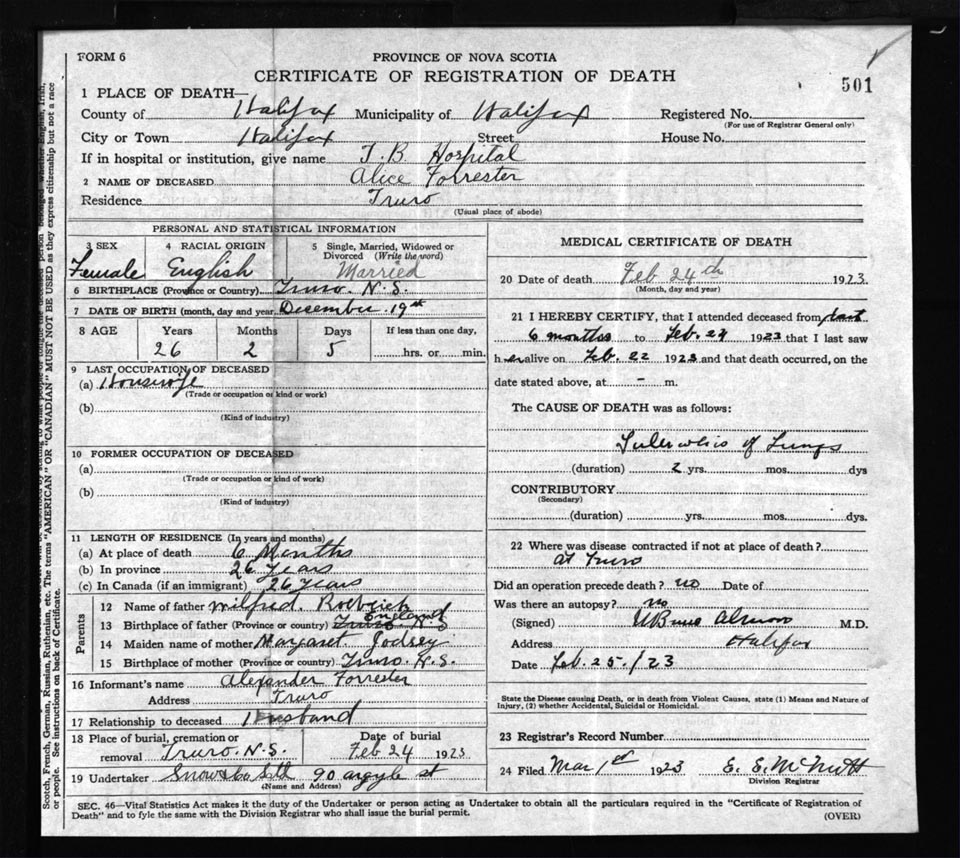 FORM 6
PROVINCE OF NOVA SCOTIA
CERTIFICATE OF REGISTRATION OF DEATH
501
1 PLACE OF DEATH—
County of Halifax Municipality of Halifax Registered No.
(For use of Registrar General only)
City or Town Halifax Street House No.
If in hospital or institution, give name T.B. Hospital
2 NAME OF DECEASED Alice Forrester
Residence Truro
(Usual place of abode)
PERSONAL AND STATISTICAL INFORMATION
3 SEX 4 RACIAL ORIGIN 5 Single, Married, Widowed or
Divorced (Write the word)
Female English Married
6 BIRTHPLACE (Province or Country) Truro. N.S.
7 DATE OF BIRTH (month, day and year) December 19th
8 AGE Years Months Days If less than one day,
26 2 5 hrs. or min.
9 LAST OCCUPATION OF DECEASED
(a) Housewife
(Trade or occupation or kind or work)
(b)
(Kind of industry)
10 FORMER OCCUPATION OF DECEASED
(a)
(Trade or occupation or kind of work)
(b)
(Kind of industry)
11 LENGTH OF RESIDENCE (In years and months)
(a) At place of death 6 Months
(b) In province 26 Years
(c) In Canada (if an immigrant) 26 Years
Parents
12 Name of father Milfred
13 Birthplace of father (Province or country) Truro N.S. England
14 Maiden name of mother Margaret
15 Birthplace of mother (Province or country) Truro. N.S.
16 Informant's name Alexander Forrester
Address Truro
17 Relationship to deceased Husband
18 Place of burial, cremation or Date of burial
removal Truro. N.S. Feb 24 1923
19 Undertaker Snow & Co Ltd 90 argyle st
(Name and Address)
MEDICAL CERTIFICATE OF DEATH
20 Date of death Feb 24th 1923
(Month, day and year)
21 I HEREBY CERTIFY, that I attended deceased from last
6 months to Feb. 24 1923 that I last saw
her alive on Feb. 22 1923 and that death occurred, on the
date stated above, at - m.
The CAUSE OF DEATH was as follows:
Tuberculosis of Lungs
(duration) 2 yrs. mos. dys
CONTRIBUTORY
(Secondary)
(duration) yrs. mos. dys.
22 Where was disease contracted if not at place of death?
at Truro
Did an operation precede death? no Date of
Was there an autopsy? no
(Signed) Almon M.D.
Address Halifax
Date Feb. 25. / 23
State the Disease causing Death, or in death from Violent Causes, state (1) Means and Nature of
Injury, (2) whether Accidental, Suicidal or Homicidal.
23 Registrar's Record Number
24 Filed Mar 1st 1923 E. E. McNutt
Division Registrar
SEC. 46—Vital Statistics Act makes it the duty of the Undertaker or person acting as Undertaker to obtain all the particulars required in the "Certificate of Registration of
Death" and to fyle the same with the Division Registrar who shall issue the burial permit.
(OVER)
Scotch, French, German, Russian, Ruthenian, etc. The terms "AMERICAN" OR "CANADIAN" MUST NOT BE USED as they express citizenship but not a race
or people. See instructions on back of Certificate.